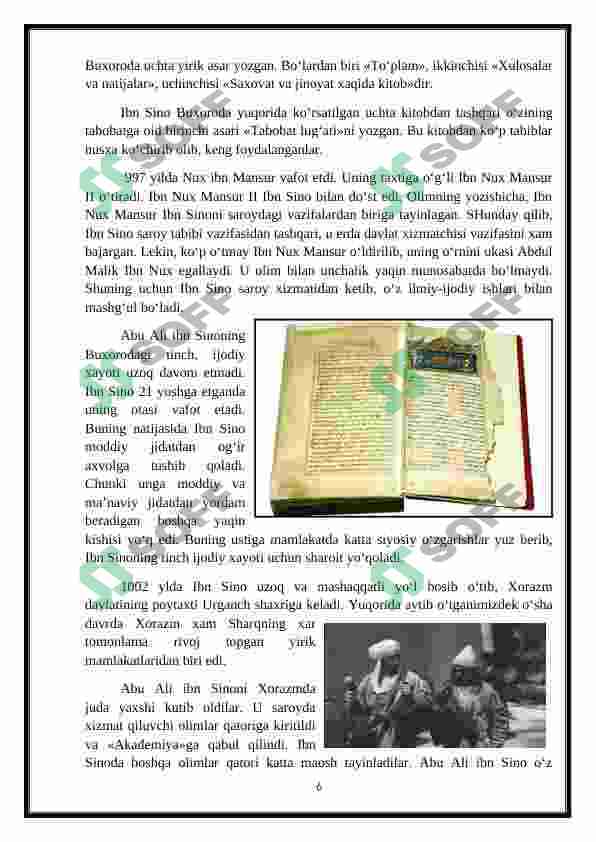 Buxoroda uchta yirik asar yozgan. Bo‘lardan biri «To‘plam», ikkinchisi «Xulosalar
va natijalar», uchinchisi «Saxovat va jinoyat xaqida kitob»dir.
Ibn Sino Buxoroda yuqorida ko‘rsatilgan uchta kitobdan tashqari o‘zining
tabobatga oid birinchi asari «Tabobat lug‘ati»ni yozgan. Bu kitobdan ko‘p tabiblar
nusxa ko‘chirib olib, keng foydalanganlar.
997 yilda Nux ibn Mansur vafot etdi. Uning taxtiga o‘g‘li Ibn Nux Mansur
II o‘tiradi. Ibn Nux Mansur II Ibn Sino bilan do‘st edi. Olimning yozishicha, Ibn
Nux Mansur Ibn Sinoni saroydagi vazifalardan biriga tayinlagan. SHunday qilib,
Ibn Sino saroy tabibi vazifasidan tashqari, u erda davlat xizmatchisi vazifasini xam
bajargan. Lekin, ko‘p o‘tmay Ibn Nux Mansur o‘ldirilib, uning o‘rnini ukasi Abdul
Malik Ibn Nux egallaydi. U olim bilan unchalik yaqin munosabatda bo‘lmaydi.
Shuning uchun Ibn Sino saroy xizmatidan ketib, o‘z ilmiy-ijodiy ishlari bilan
mashg‘ul bo‘ladi.
Abu Ali ibn Sinoning
Buxorodagi tinch, ijodiy
xayoti uzoq davom etmadi.
Ibn Sino 21 yoshga etganda
uning otasi vafot etadi.
Buning natijasida Ibn Sino
moddiy jidatdan og‘ir
axvolga tushib qoladi.
Chunki unga moddiy va
ma’naviy jidatdan yordam
beradigan boshqa yaqin
kishisi yo‘q edi. Buning ustiga mamlakatda katta siyosiy o‘zgarishlar yuz berib,
Ibn Sinoning tinch ijodiy xayoti uchun sharoit yo‘qoladi.
1002 ylda Ibn Sino uzoq va mashaqqatli yo‘l bosib o‘tib, Xorazm
davlatining poytaxti Urganch shaxriga keladi. Yuqorida aytib o‘tganimizdek o‘sha
davrda Xorazm xam Sharqning xar
tomonlama rivoj topgan yirik
mamlakatlaridan biri edi.
Abu Ali ibn Sinoni Xorazmda
juda yaxshi kutib oldilar. U saroyda
xizmat qiluvchi olimlar qatoriga kiritildi
va «Akademiya»ga qabul qilindi. Ibn
Sinoda boshqa olimlar qatori katta maosh tayinladilar. Abu Ali ibn Sino o‘z
6
SOFF
SOFF
SOFF
SOFF
SOFF
SOFF